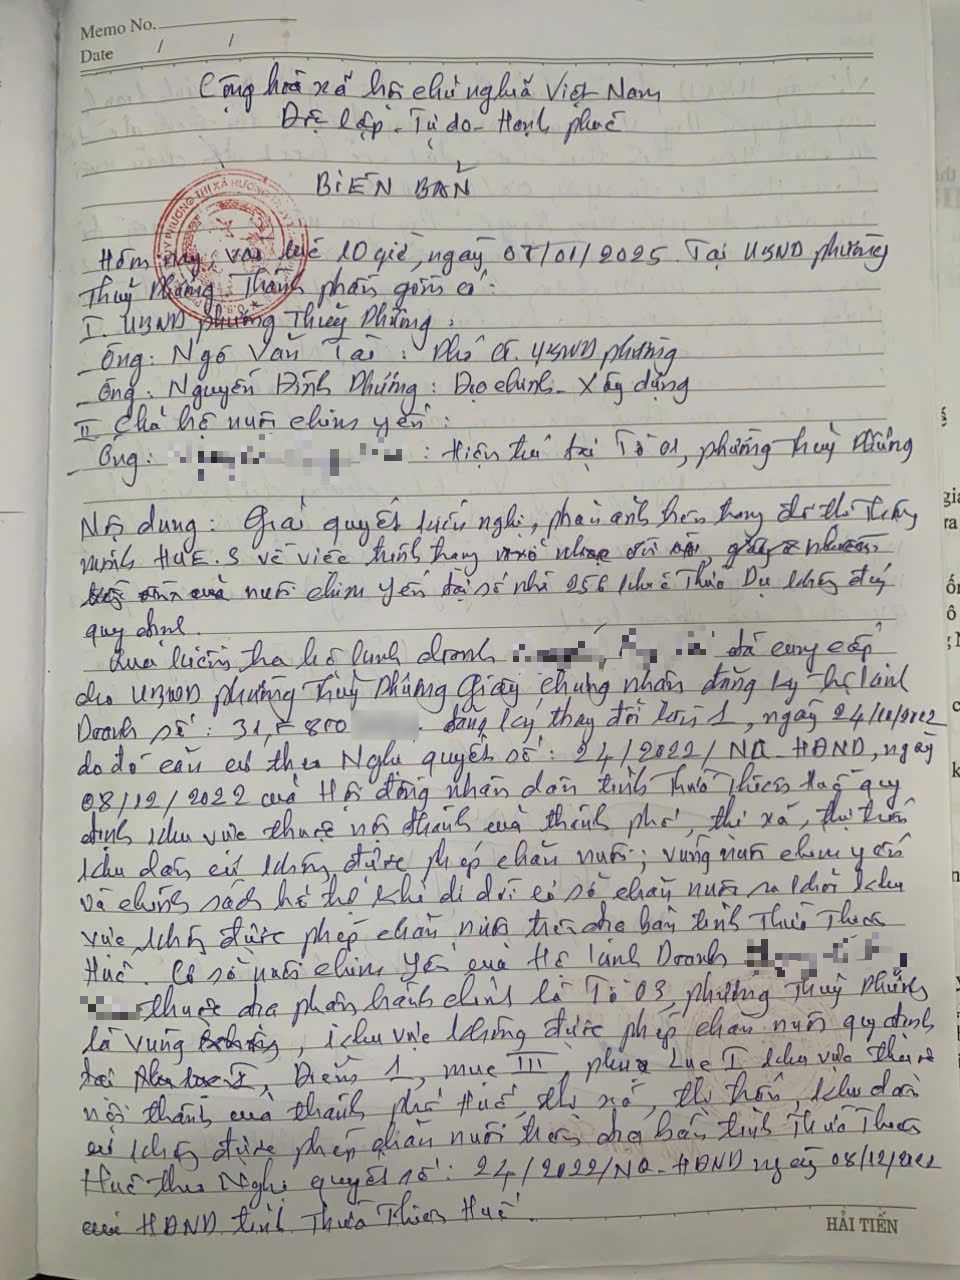 Memo No.
Date / /
Cộng hoà xã hội chủ nghĩa Việt Nam
Độc lập - Tự do - Hạnh phúc
BIÊN BẢN
Hôm nay, vào lúc 10 giờ, ngày 07/01/2025. Tại UBND phường
Thuỷ Phương. Thành phần gồm có:
I. UBND phường Thuỷ Phương:
Ông: Ngô Văn Tài: Phó CT. UBND phường
Ông: Nguyễn Đình Phương: Địa chính - Xây dựng
II Chủ hộ nuôi chim yến:
Ông: : Hiện trú tại Tổ 01, phường Thuỷ Phương
Nội dung: Giải quyết kiến nghị, phản ánh trên trang đô thị thông
minh HUE.S về việc tình trạng
nuôi chim yến tại số nhà 256 Khúc Thừa Dụ không đúng
quy định.
Qua kiểm tra hộ kinh doanh đã cung cấp
cho UBND phường Thuỷ Phương Giấy chứng nhận đăng ký hộ kinh
Doanh số: 31, 800 đăng ký thay đổi lần 1, ngày 24/10/2012
do đó căn cứ theo Nghị quyết số: 24/2022/NQ-HĐND, ngày
08/12/2022 của Hội đồng nhân dân tỉnh Thừa Thiên Huế quy
định khu vực thuộc nội thành của thành phố, thị xã, thị trấn
khu dân cư không được phép chăn nuôi; vùng nuôi chim yến
và chính sách hỗ trợ khi di dời cơ sở chăn nuôi ra khỏi khu
vực không được phép chăn nuôi trên địa bàn tỉnh Thừa Thiên
Huế. Cơ sở nuôi chim yến của Hộ kinh Doanh
thuộc địa phận hành chính là Tổ 03, phường Thuỷ Phương
là vùng , khu vực không được phép chăn nuôi quy định
tại Phụ lục I, Điểm 1, mục III, phụ lục I khu vực thuộc
nội thành của thành phố Huế, thị xã, thị trấn, khu dân
cư không được phép chăn nuôi trên địa bàn tỉnh Thừa Thiên
Huế theo Nghị quyết số: 24/2022/NQ-HĐND ngày 08/12/2022
của HĐND tỉnh Thừa Thiên Huế.
HẢI TIẾN